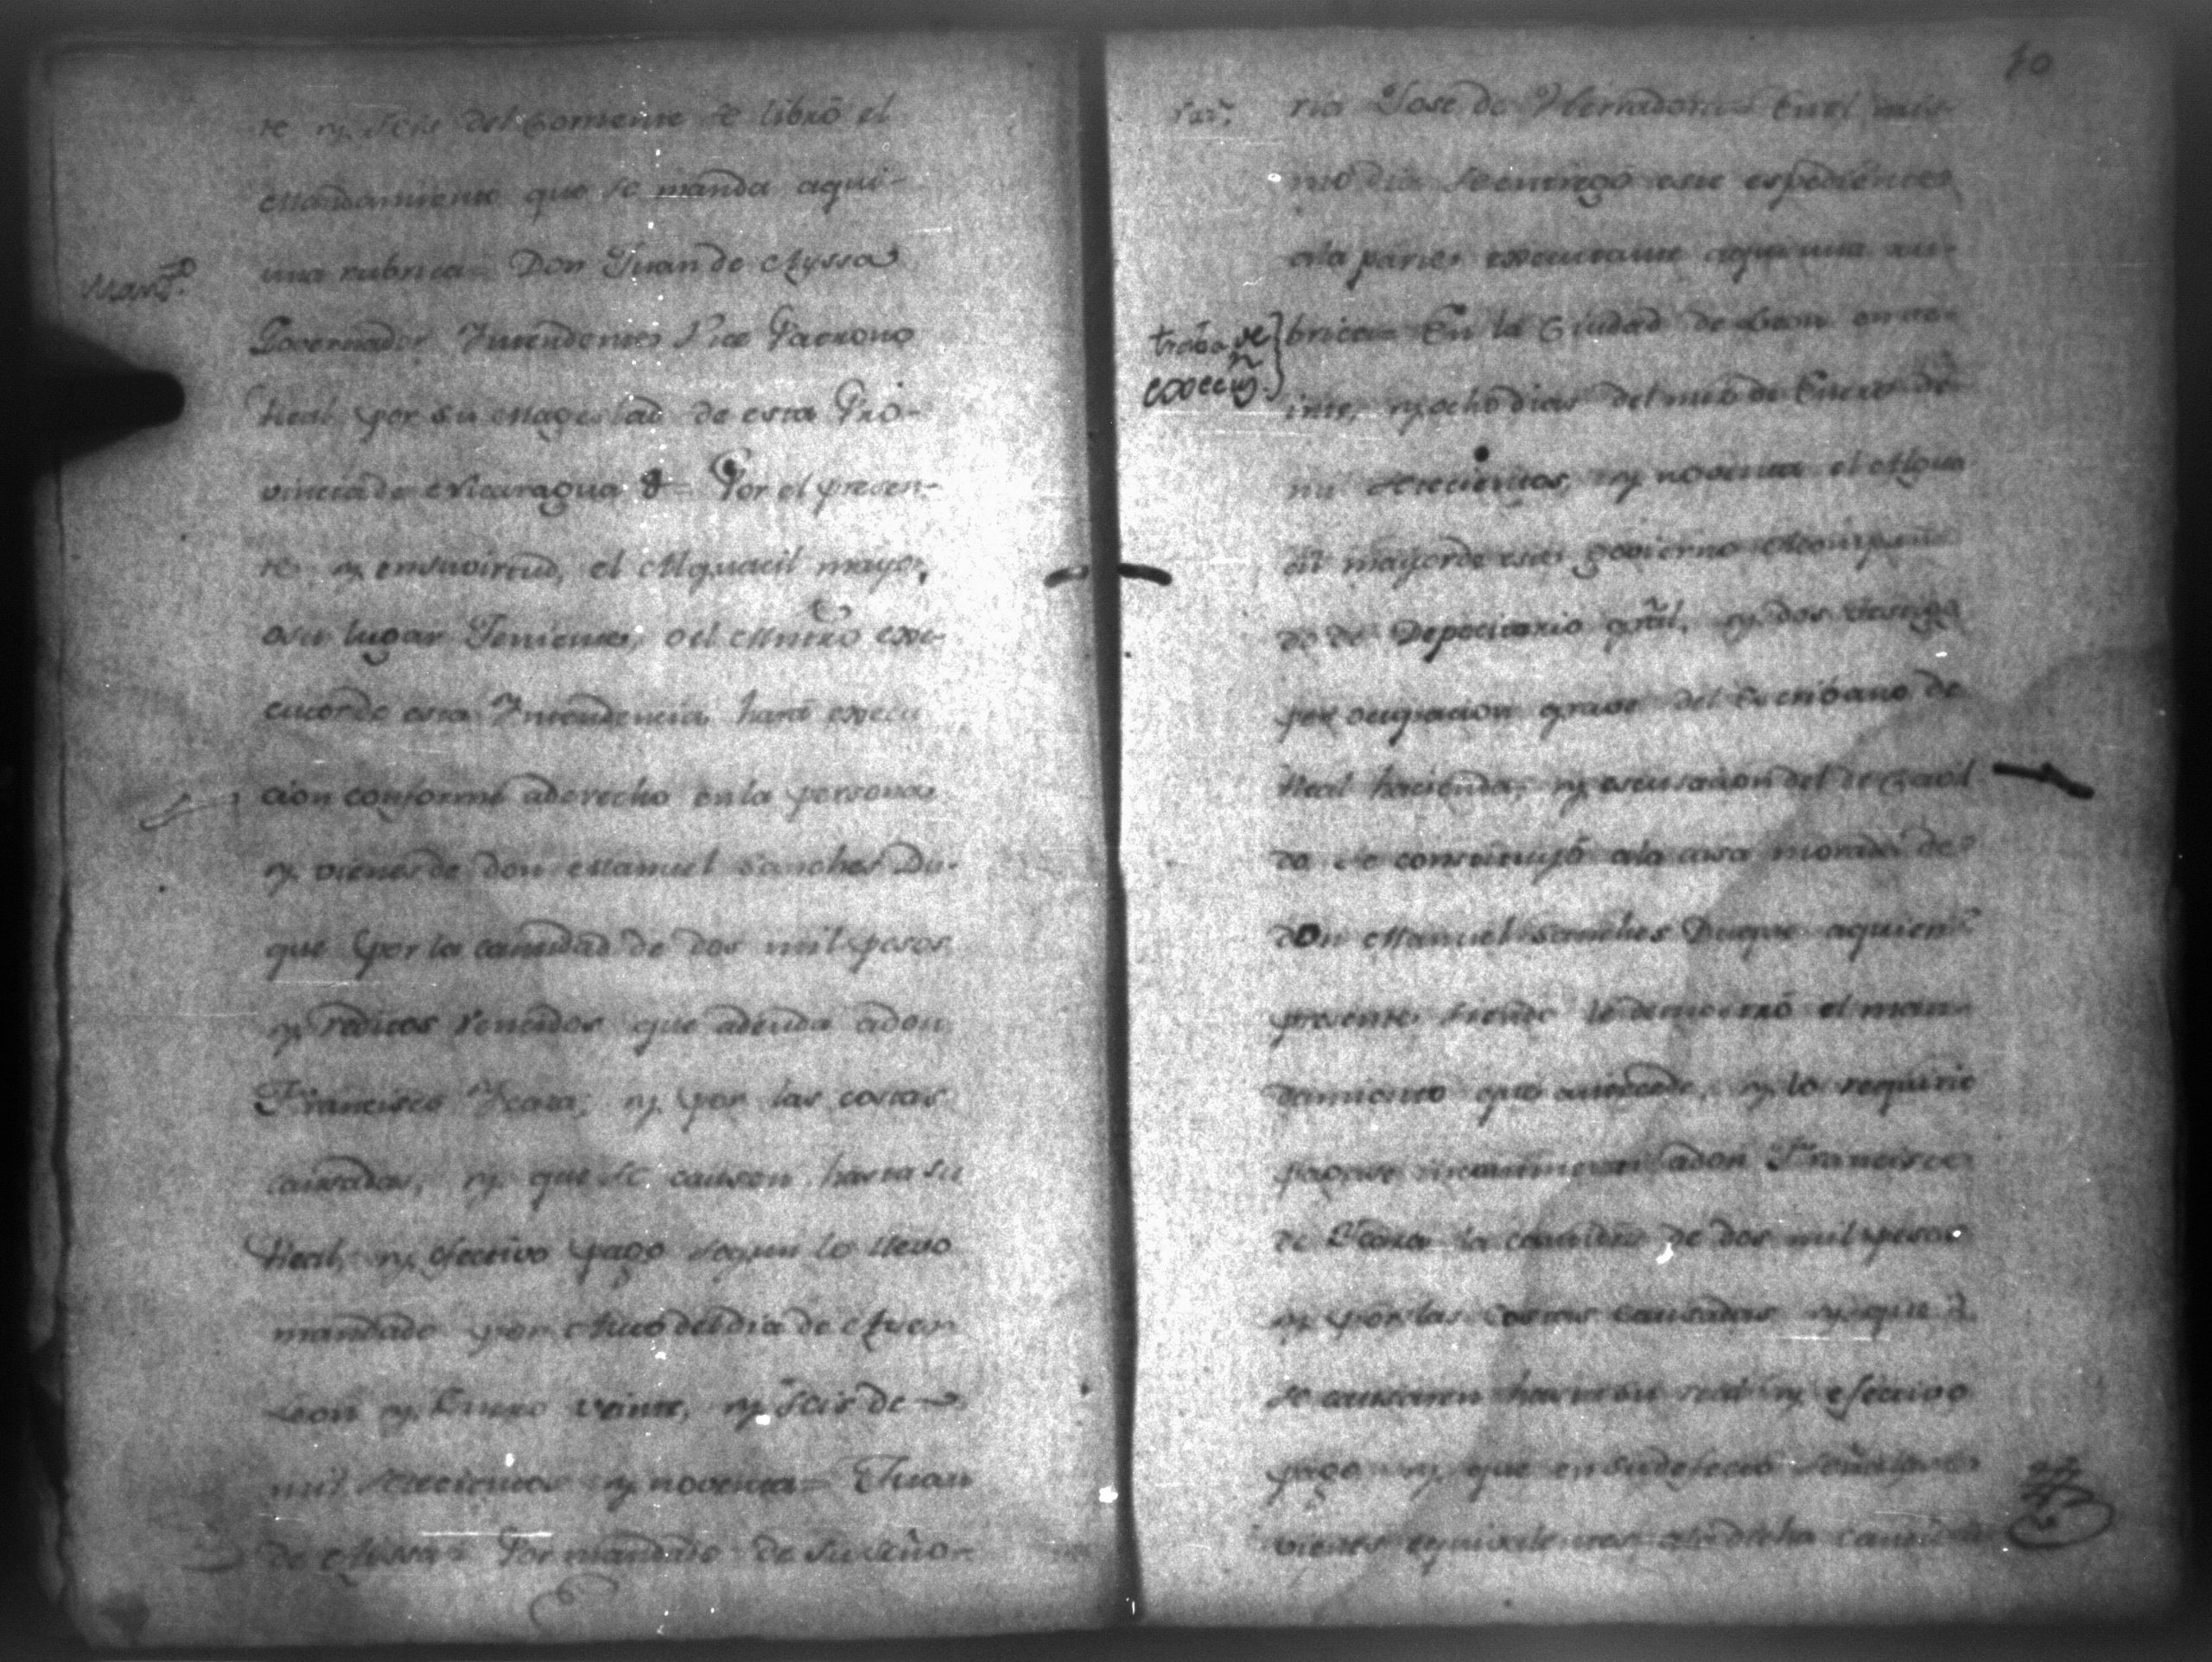 te y seis del corriente se libró el
Mandamiento que se manda aqui
una rubrica = Don Juan de Ayssa
Mand.to
Governador Intendente Vice Patrono
Real por su Magestad de esta Pro-
vincia de Nicaragua &= Por el presen-
te y en su virtud, el Alguacil mayor,
o su lugar Teniente, o el Mntro exe-
cutor de esta Intendencia hará execu
cion conforme a derecho en la persona
y vienes de don Manuel Sanches Du-
que por la cantidad de dos mil pesos
y reditos vencidos que adeuda a don
Francisco Icaza, y por las costas
causadas, y que se causen hasta su
Real, y efectivo pago segun lo llevo
mandado por Auto del dia de Ayer
Leon y Enero veinte, y seis de
mil setecientos y noventa = Juan
de Ayssa = Por mandado de su seño-
10
ria Jose de en el mis-
mo dia se entregó este espediente
a la parte executante aqui una ru-
traba de
execuñ.
brica = En la Ciudad de Leon en ve-
inte, y ocho dias del mes de Enero de
mil setecientos, y noventa el Algua
cil mayor de este govierno Acompaña
do de Depocitario gral. y dos testigo
por ocupacion grave del Escribano de
Real hacienda, y escusacion del de Cavil
do se constituyó a la casa morada de
don Manuel Sanches Duque a quien
presente siendo le demostró el man-
damiento que antecede, y lo requirio
pagase a don Francisco
de Icaza la cantidad de dos mil pesos
y por las costas causadas y que
se causaren hasta su real y efectivo
pago y que en su defecto señalase
vienes equivalentes a la dicha cantid